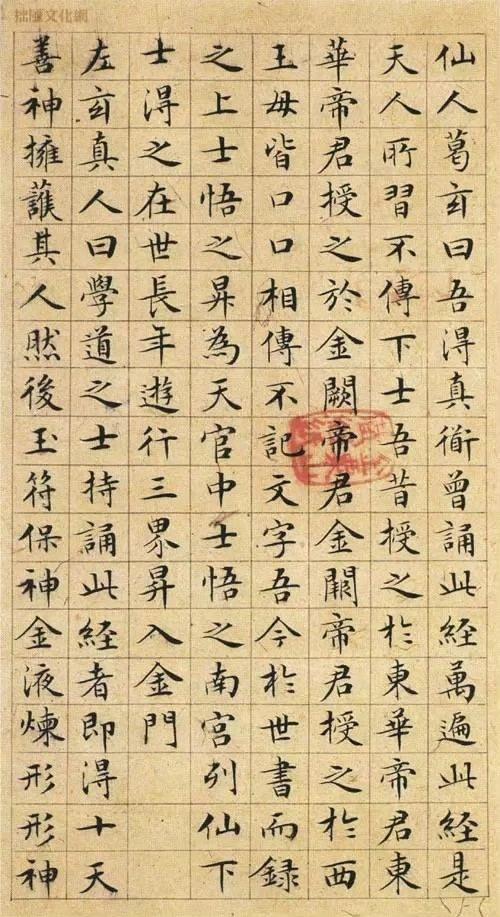 仙人葛玄曰吾淂真衜曾誦此經萬遍此經是
天人所習不傳下士吾昔授之於東華帝君東
華帝君授之於金闕帝君金闕帝君授之於西
王母皆口口相傳不記文字吾今於世書而録
之上士悟之昇為天官中士悟之南宮列仙下
士淂之在世長年遊行三界昇入金門
左玄真人曰學道之士持誦此経者即淂十天
善神擁護其人然後玉符保神金液煉形形神
拙風文化網